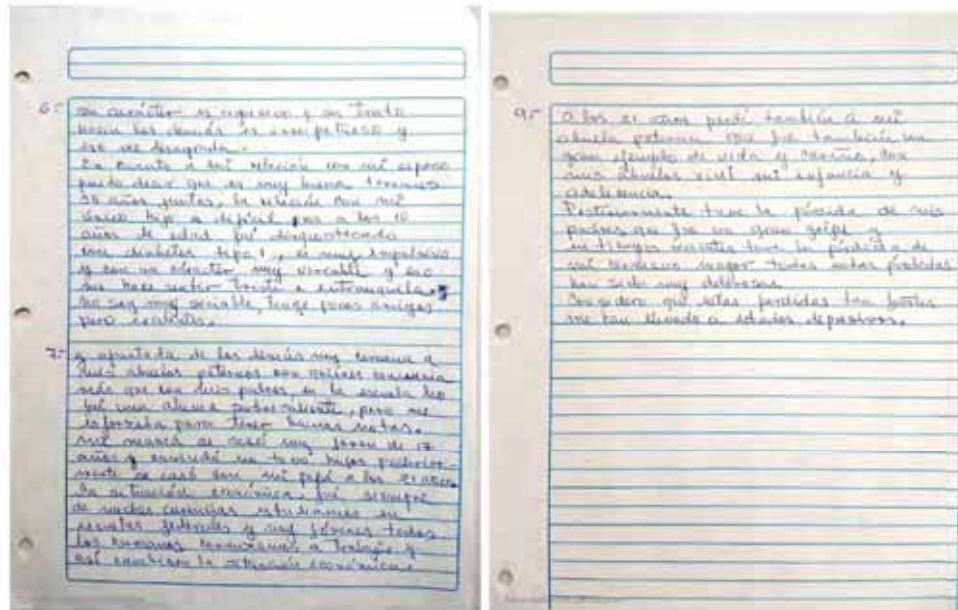 6.- su carácter es agresivo y su trato
hacia los demás es irrespetuoso y
eso me desagrada.
En cuanto a mi relación con mi esposo
puedo decir que es muy buena tenemos
30 años juntos, la relación con mi
único hijo es difícil pues a los 10
años de edad fué diagnosticado
con diabetes tipo 1, es muy impulsivo
y con un carácter muy variable y eso
me hace sentir triste e intranquila.
No soy muy sociable, tengo pocos amigos
pero
7.- y apartada de los demás muy cercana a
mis abuelos paternos con quienes convivía
más que con mis padres, en la escuela no
fuí una alumna sobresaliente, pero me
esforzaba para tener buenas notas.
Mi mamá se casó muy joven de 17
años y enviudó no tuvo hijos posterior-
mente se casó con mi papá a los 21 años.
La situación económica, fué siempre
de muchas carencias estudiamos en
escuelas federales y muy jóvenes todos
los hermanos comenzamos a trabajar y
así cambiaron la situación económica.
9.- A los 21 años perdí también a mi
abuela paterna que fue también un
gran ejemplo de vida y cariño, con
mis abuelos viví mi infancia y
adolescencia.
Posteriormente tuve la pérdida de mis
padres que fue un gran golpe y
en tiempos recientes tuve la pérdida de
mi hermano mayor todas estas pérdidas
han sido muy dolorosas.
Considero que estas perdidas tan fuertes
me han llevado a estados depresivos.